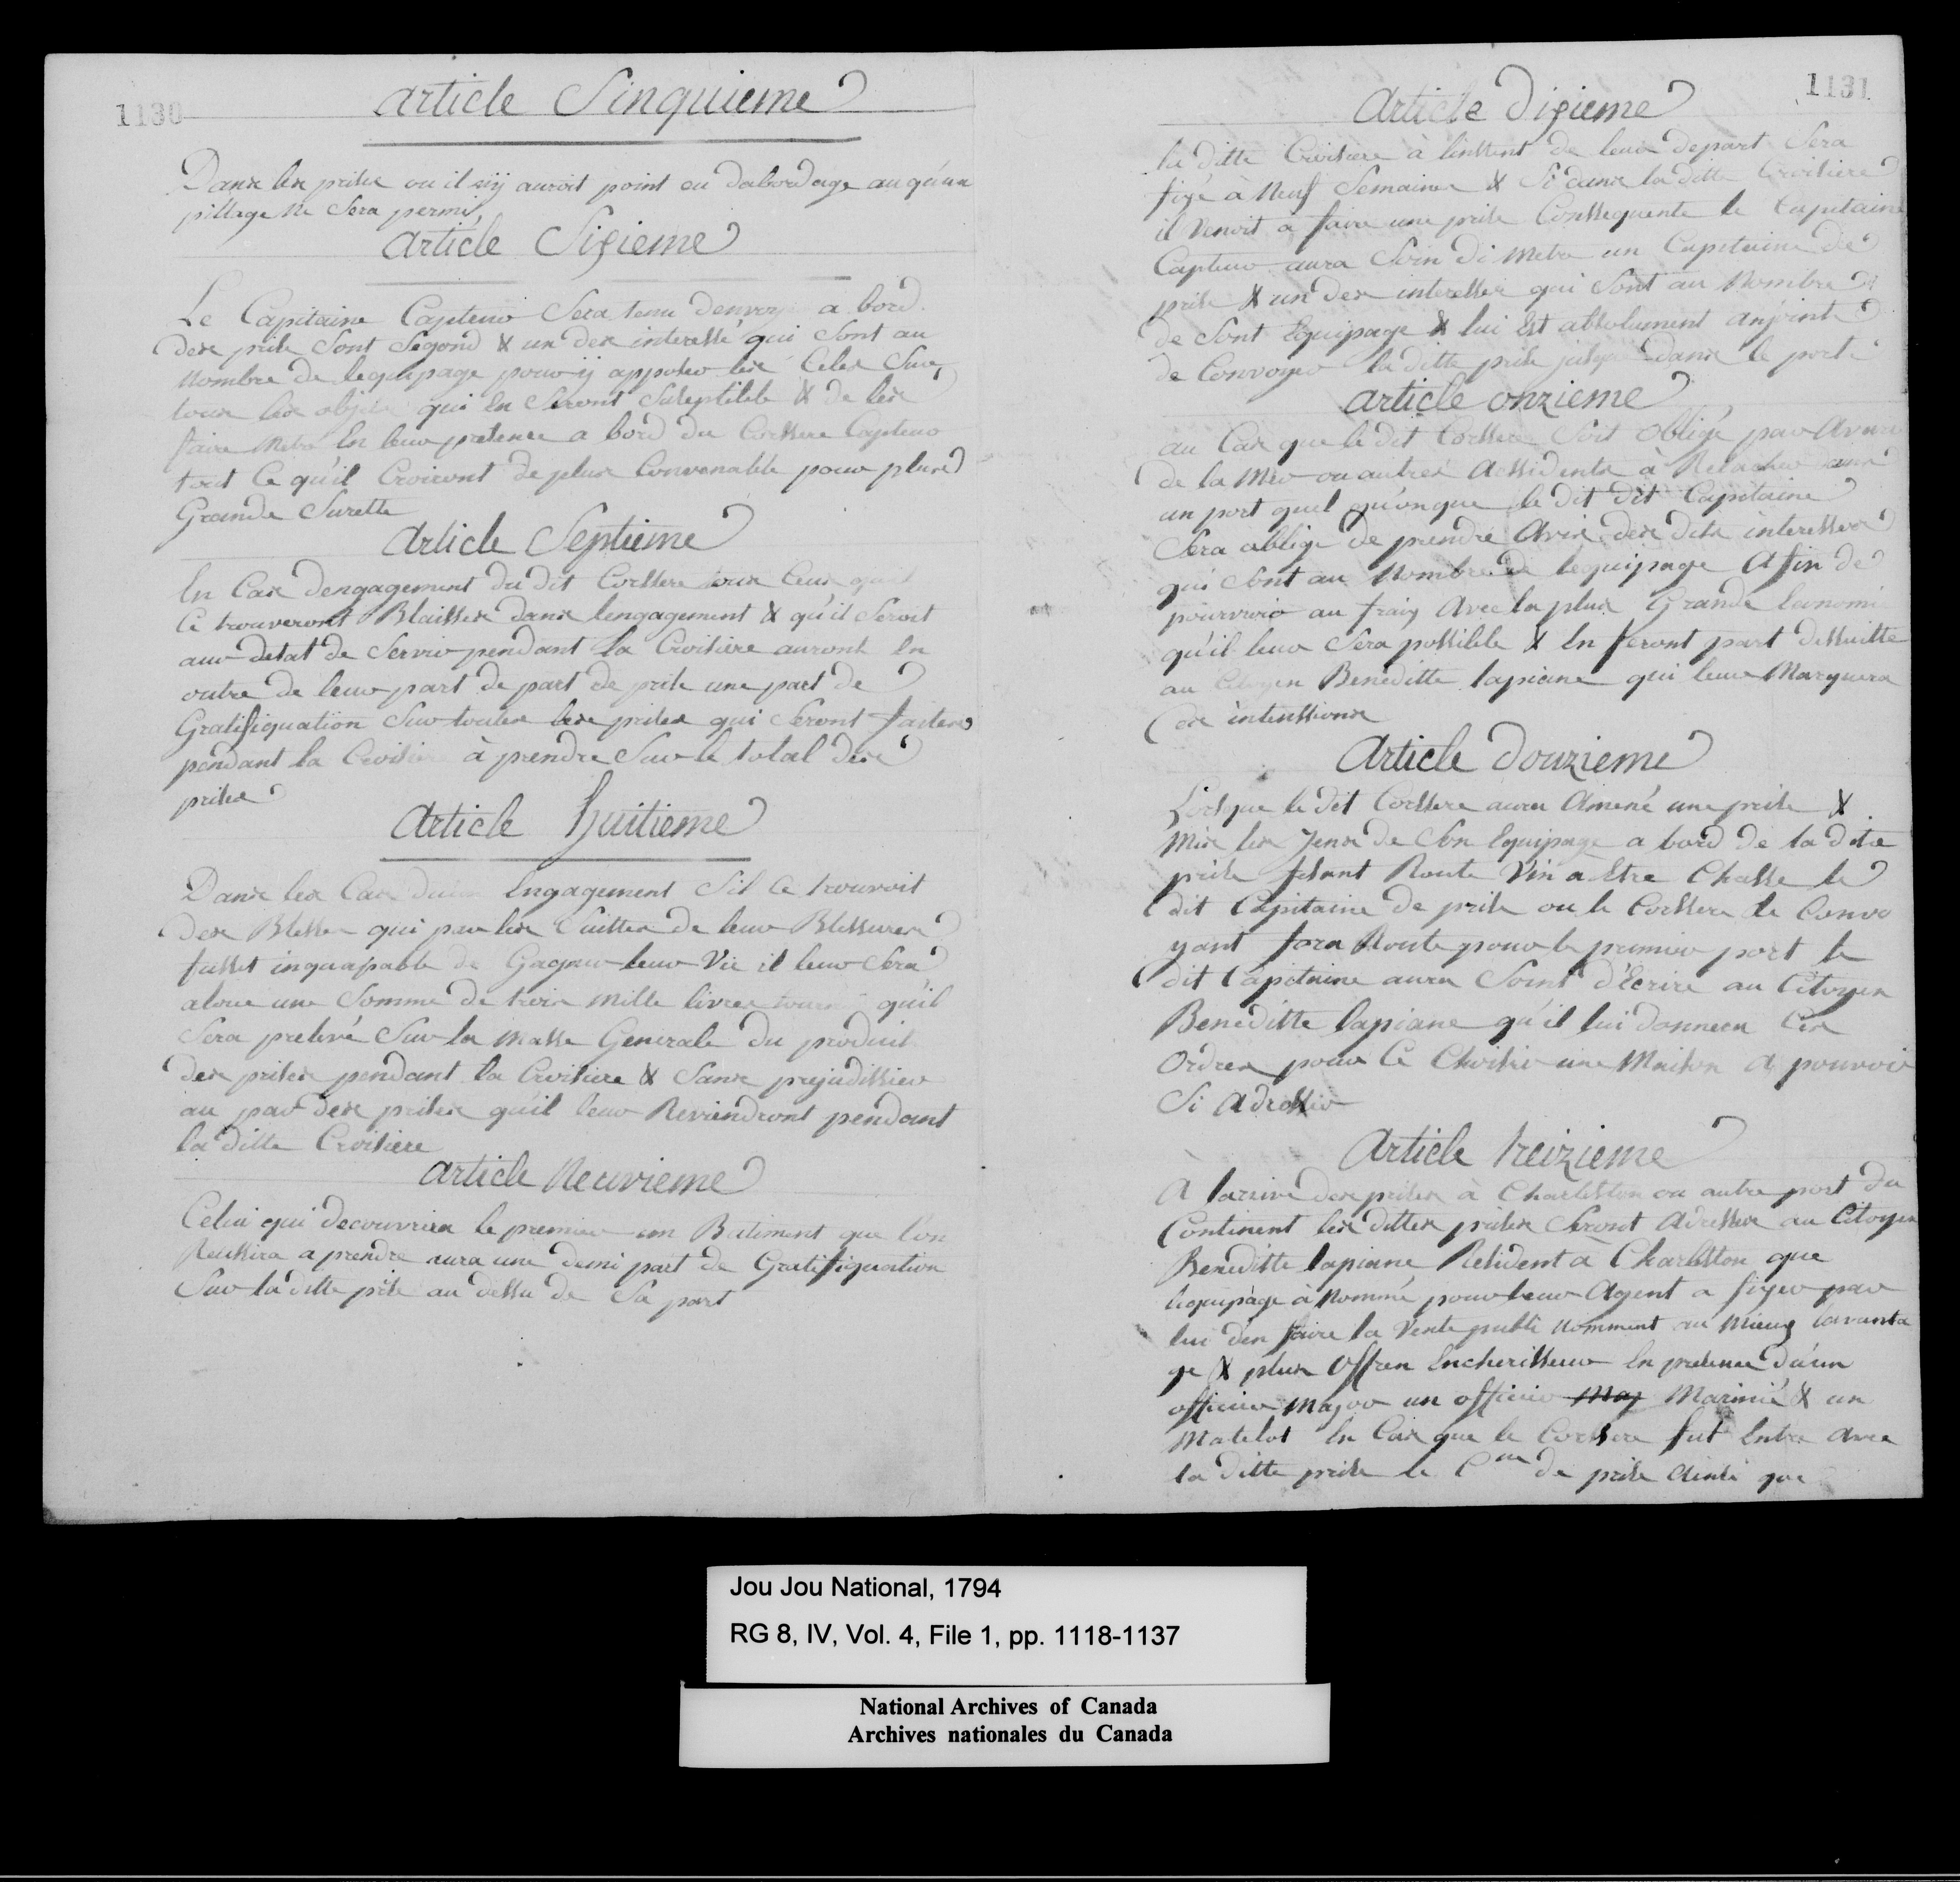 1130
Article Sinquieme
Dans les prises ou il n'ÿ auroit point eu dabordage auqu'un
pillage ne Sera permis
Article Sixieme
Le Capitaine Capteur Sera tenu denvoyer a bord
des prise Sont Segond & un des interessé qui Sont au
Nombre de lequipage pour ÿ apposer les Celes Sur
tous les objets qui En Seront Suseptible & de les
faire Metre En leur presence a bord du Corssere Capteur
tout Ce qu'il Croiront de plus Convenable pour plus
Grande Surette
Article Septieme
En Cas dengagement du dit Corssere tous Ceux qui
Ce trouveront Blaisses dans lengagement & qu'il Seroit
aur detat de Servir pendant la Croisiere auront En
outre de leur part de part de prise une part de
Gratifiquation Sur toutes les prises qui Seront faites
pendant la Croisiere à prendre Sur le total des
prises
Article huitieme
Dans les Cas dun Engagement S'il Ce trouvoit
des Blesses qui par les Suittes de leur Blessures
fusset inquapable de Gagner leur Vie il leur Sera
aloue une Somme de trois Mille livres qu'il
Sera prelevé Sur la Masse Generale du produit
des prises pendant la Croisiere & Sans prejudissier
au par des prises qu'il leur Reviendront pendant
la ditte Croisiere
Article Neuvieme
Celui qui decouvrira le premier un Batiment que l'on
Reussira a prendre aura une demi part de Gratifiquation
Sur la ditte prise au dessu de Sa part
1131
Article Dixieme
la ditte Croisiere à linstent de leur depart Sera
fixé à Neuf Semaines & Si dans la ditte Croisiere
il Venoit a faire une prise Conssequente le Capitaine
Capteur aura Soin di Metre un Capitaine de
prise & un des interesses qui Sont au Nombre de
de Sont Equipage & lui Est absolument anjoint
de Convoyer la ditte prise jusque dans le port
Article onzieme
au Cas que le dit Corssere Soit obligé par
de la Mer ou autres Assidents à Relacher dans
un port quel qu'onque le dit dit Capitaine
Sera obligé de prendre Avis des dits interesses
qui Sont au Nombre de lequipage Afin de
pourvoir au fraix Avec la plus Grande Economi
qu'il leur Sera possible & En feront part dessuitte
au Citoyen Beneditte lapiane qui leur Marquera
Ces intenssions
Article Douzieme
Lorsque le dit Corssere aura Amené une prise &
Mis les Jens de Son Equipage a bord de la dite
prise fesant Route Vin a Etre Chasse le
dit Capitaine de prise ou le Corssere le Convo
yant fera Route pour le premier port le
dit Capitaine aura Soint d'Ecrire au Citoyen
Beneditte lapiane qu'il lui donnera Ces
Ordres pour Ce Choisir une Maison a pouvoir
Si Adresser
Article treizieme
A larrive des prises à Charlesston ou autre port du
Continent les dittes prises Seront Adresses au Citoyen
Beneditte lapiane Resident à Charlesston que
lequipage à Nommé pour leur Agent a figer par
lui d'en faire la Vente publi Nomment au Mieux lavanta
ge & plus Offren Encherisseur En presence d'un
officier Major un officier Maj Marinié & un
Matelot En Cas que le Corssere fut Entre Avec
la ditte prise le Cne de prise Ainsi que
Jou Jou National, 1794
RG 8, IV, Vol. 4, File 1, pp. 1118-1137
National Archives of Canada
Archives nationales du Canada